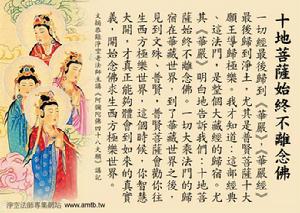 十地菩薩始終不離念佛
一切經最後歸到《華嚴》,《華嚴經》
最後歸到淨土,尤其是普賢菩薩十大
願王導歸極樂。我才知道:這部經典
、這法門,是整個大藏經的歸宿。尤
其《華嚴》明白地告訴我們:十地菩
薩始終不離念佛。一切大乘法門的歸
宿在華藏世界,到了華藏世界之後,
見到文殊、普賢,普賢菩薩會勸你往
生西方極樂世界,這時候,你智慧
大開,才真正能夠體會到如來的真實
義,開始念佛求生西方極樂世界。
文摘恭錄淨空老法師主講《阿彌陀佛四十八大願》講記
淨空法師專集網站 www.amtb.tw